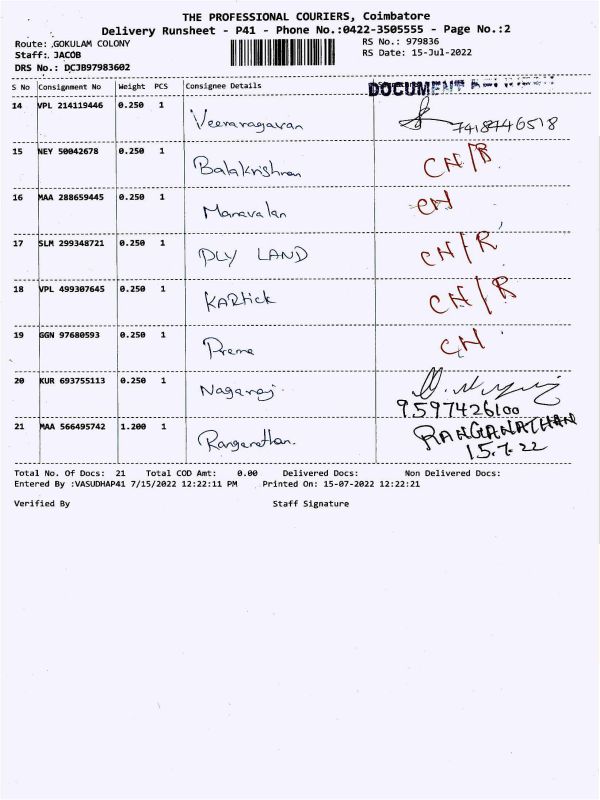 THE PROFESSIONAL COURIERS, Coimbatore
Delivery Runsheet - P41 - Phone No.:0422-3505555 - Page No.:2
Route: .GOKULAM COLONY RS No.: 979836
Staff:. JACOB RS Date: 15-Jul-2022
DRS No.: DCJB97983602
S No Consignment No Weight PCS Consignee Details DOCUMENT
14 VPL 214119446 0.250 1 Veeraragavan 7418746518
15 NEY 50042678 0.250 1 Balakrishnan CH/R
16 MAA 288659445 0.250 1 Manavalan CH
17 SLM 299348721 0.250 1 PLY LAND CH/R
18 VPL 499307645 0.250 1 KARtick CH/R
19 GGN 97680593 0.250 1 Prema CH
20 KUR 693755113 0.250 1 Nagaraj.
9597426100
21 MAA 566495742 1.200 1 Ranganathan. RANGANATHAN
15.7.22
Total No. Of Docs: 21 Total COD Amt: 0.00 Delivered Docs: Non Delivered Docs:
Entered By :VASUDHAP41 7/15/2022 12:22:11 PM Printed On: 15-07-2022 12:22:21
Verified By Staff Signature